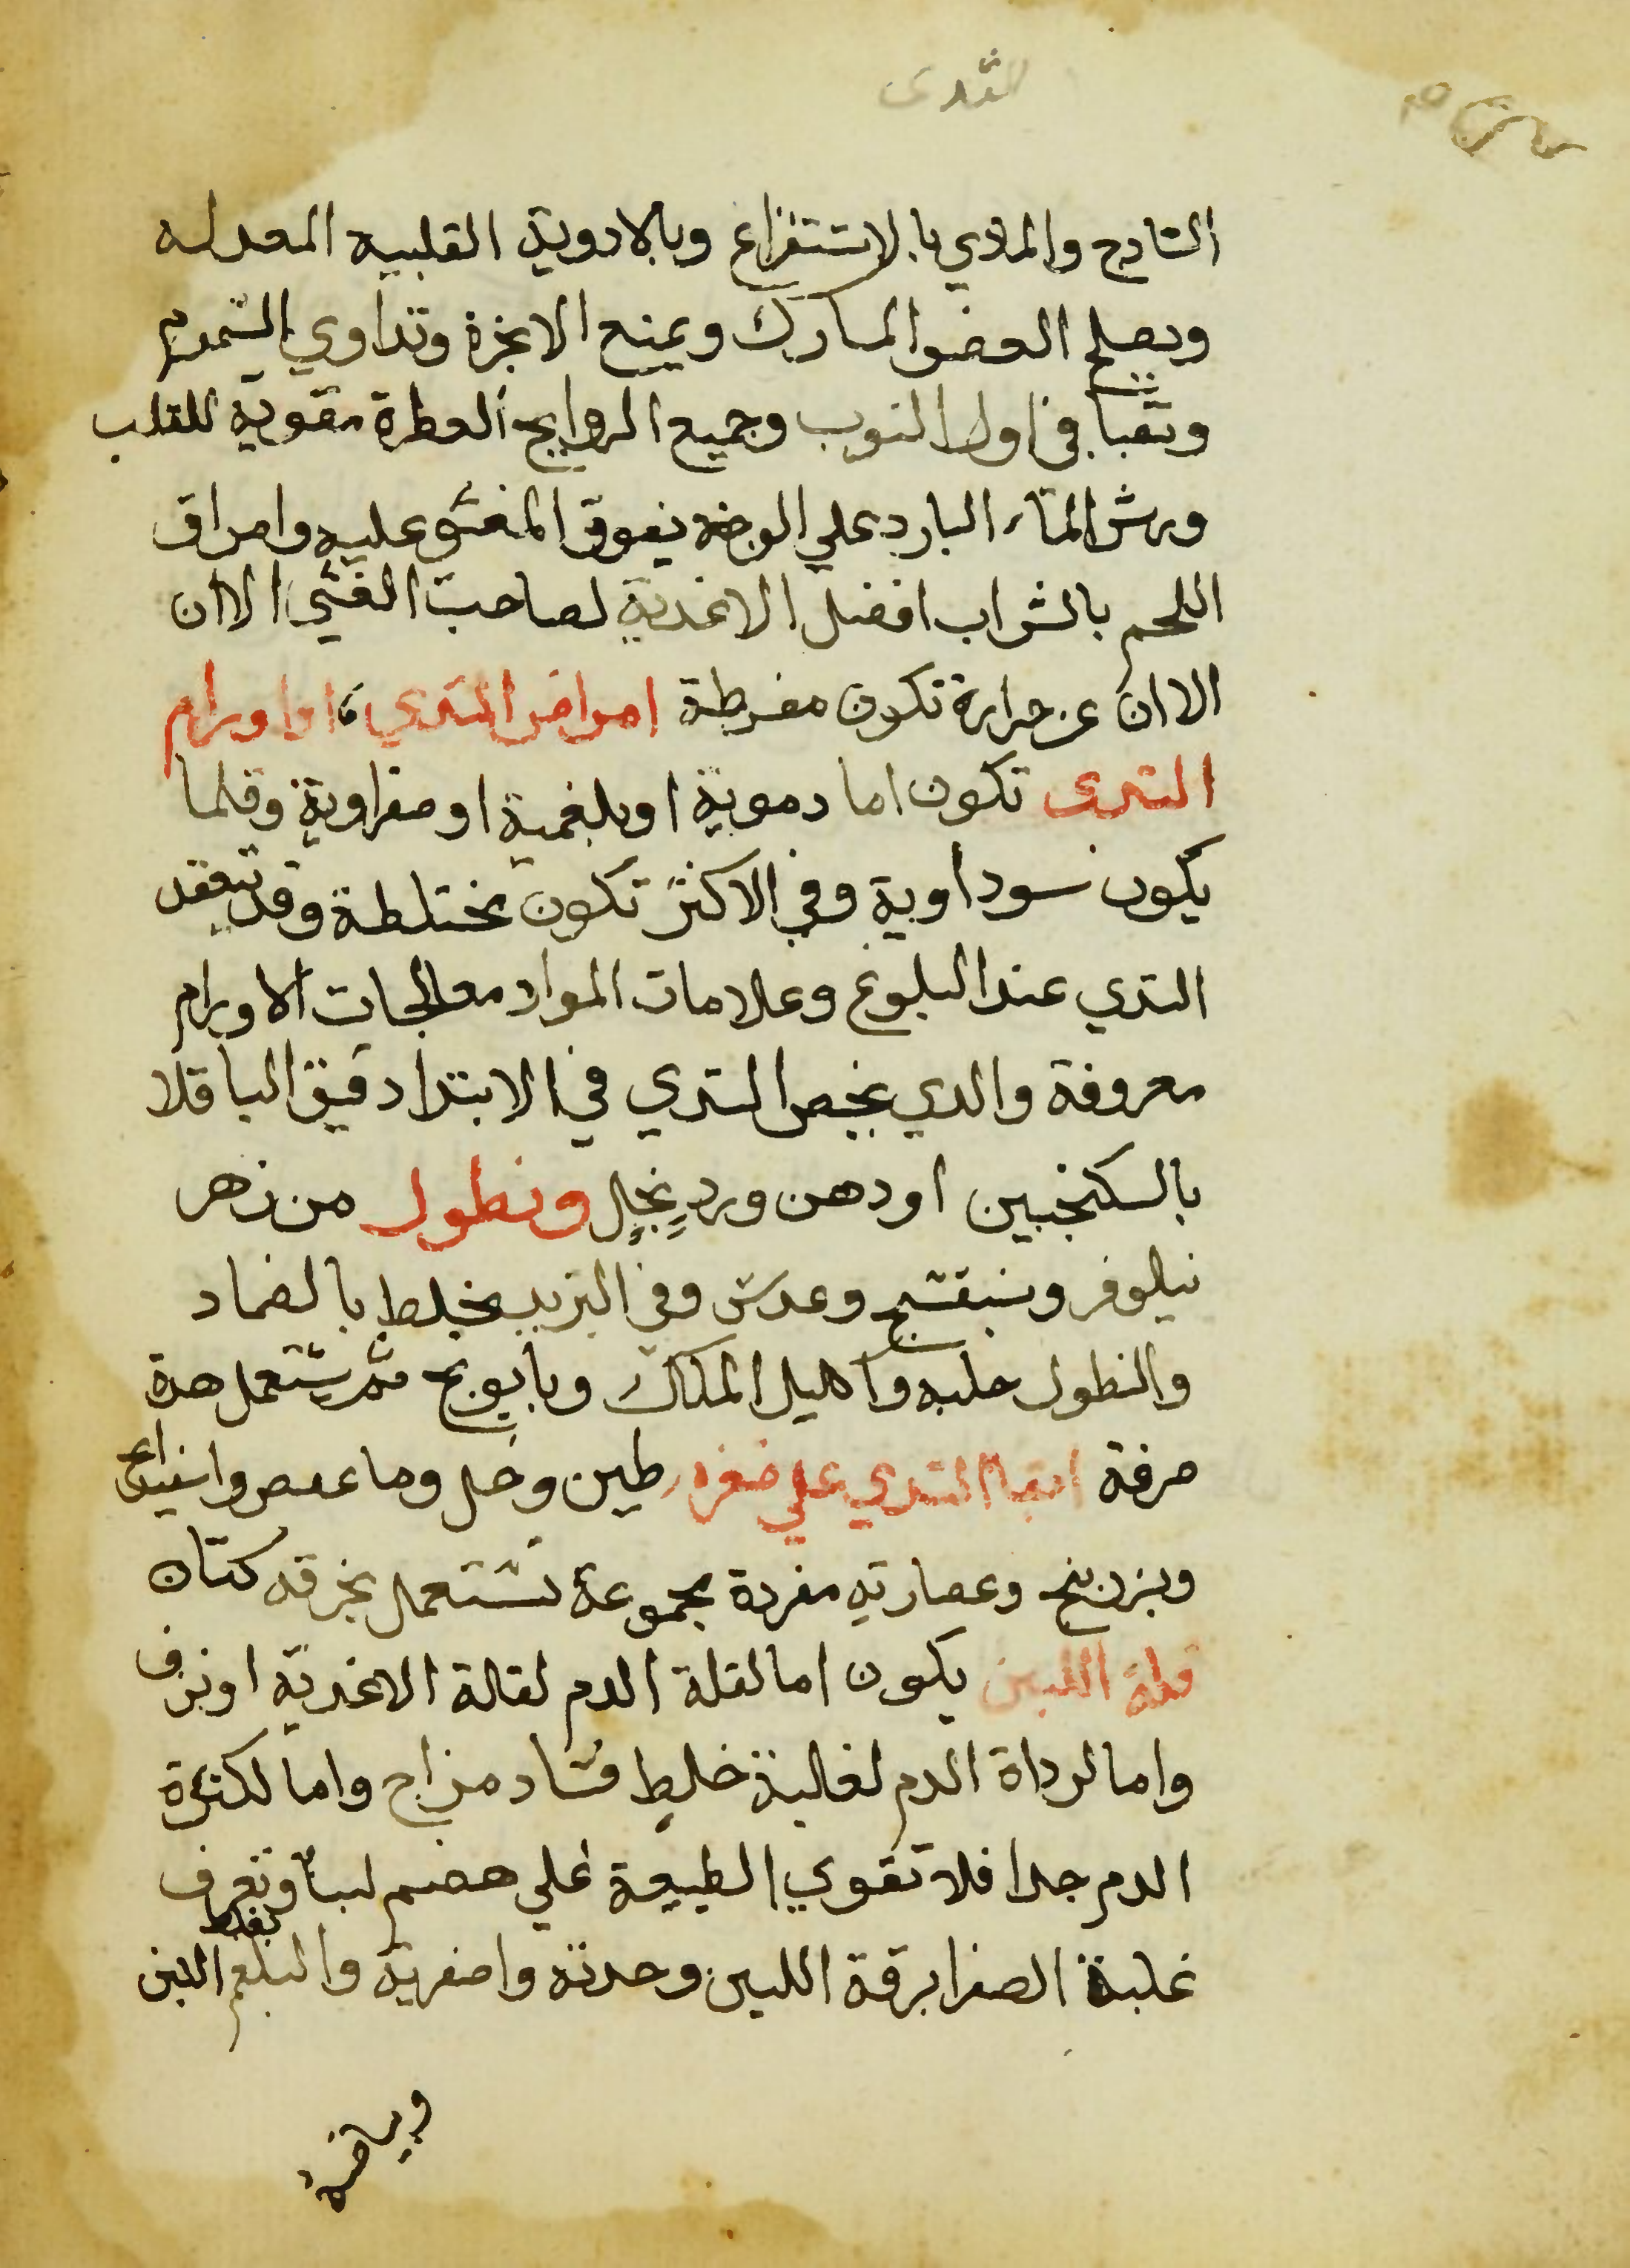 الثدى
السادج والمادي بالاستفراغ وبالادوية القلبيه المعدله
ويصلح العضو المشارك ويمنع الابخرة وتداوي السموم
وتقيا في اول النوب وجميع الروايح العطرة مقوية للقلب
ورش الماء البارد علي الوجه يفوق المغشي عليه وامراق
اللحم بالشراب افضل الاغدية لصاحب الغشي الا ان
الا ان عن حرارة تكون مفرطة امراض التدي اما اورام
التدى تكون اما دموية او بلغمية او صفراوية وقلما
يكون سوداوية وفي الاكثر تكون مختلطة وقد ينعقد
التدي عند البلوغ وعلامات المواد معالجات الاورام
معروفة والدي يخص التدي في الابتدا دقيق الباقلا
بالسكنجبين او دهن ورد بخل ونطول من زهر
نيلوفر وبنفسج وعدس وفي التزيد يخلط بالضماد
والنطول حلبه واكليل الملك وبابونج ثم يستعمل هدة
صرفة ابقا التدي علي صغره طين وخل وما عفص واسفيداج
وبزر بنج وعصارته مفردة مجموعة تستعمل بخرقه كتان
قلة اللبن يكون اما لقلة الدم لقالة الاغدية او نزف
واما لرداة الدم لغالبة خلط فساد مزاج واما لكثرة
الدم جدا فلا تقوي الطبيعة علي هضم لبنا وتعرف
غلبة الصفرا برقة اللبن وحدته واصفريه والبلغم بغلظ اللبن
وبياضه